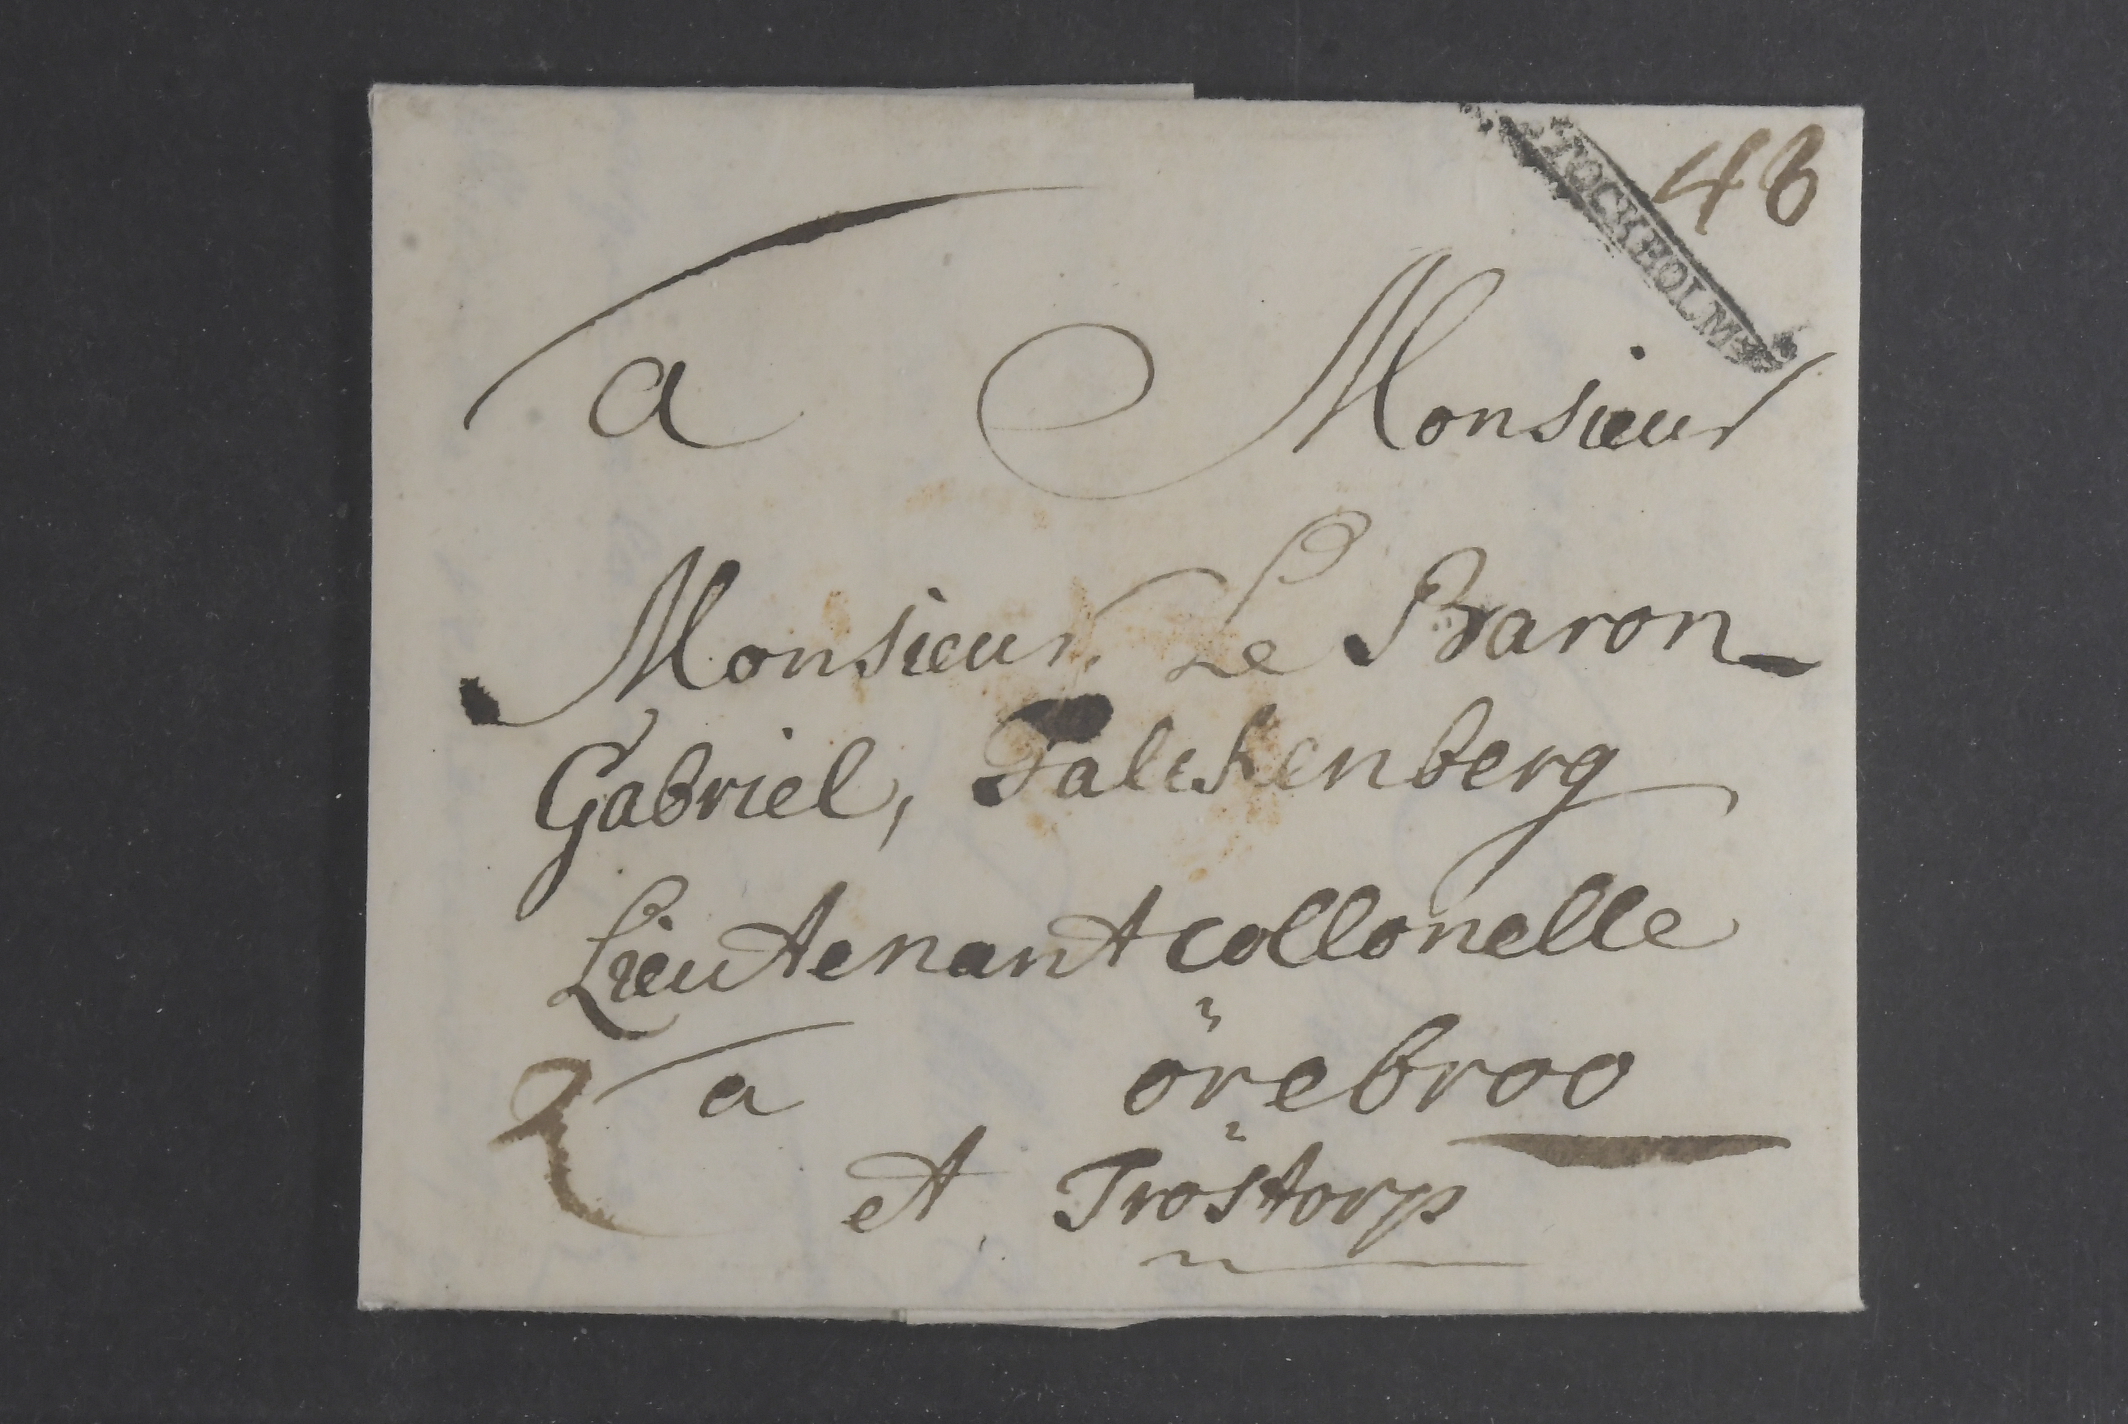 STOCKHOLM
48
a Monsieur
Monsieur Le Baron
Gabriel, Falckenberg
Lieutenant collonelle
a örebroo
et Tröstorp